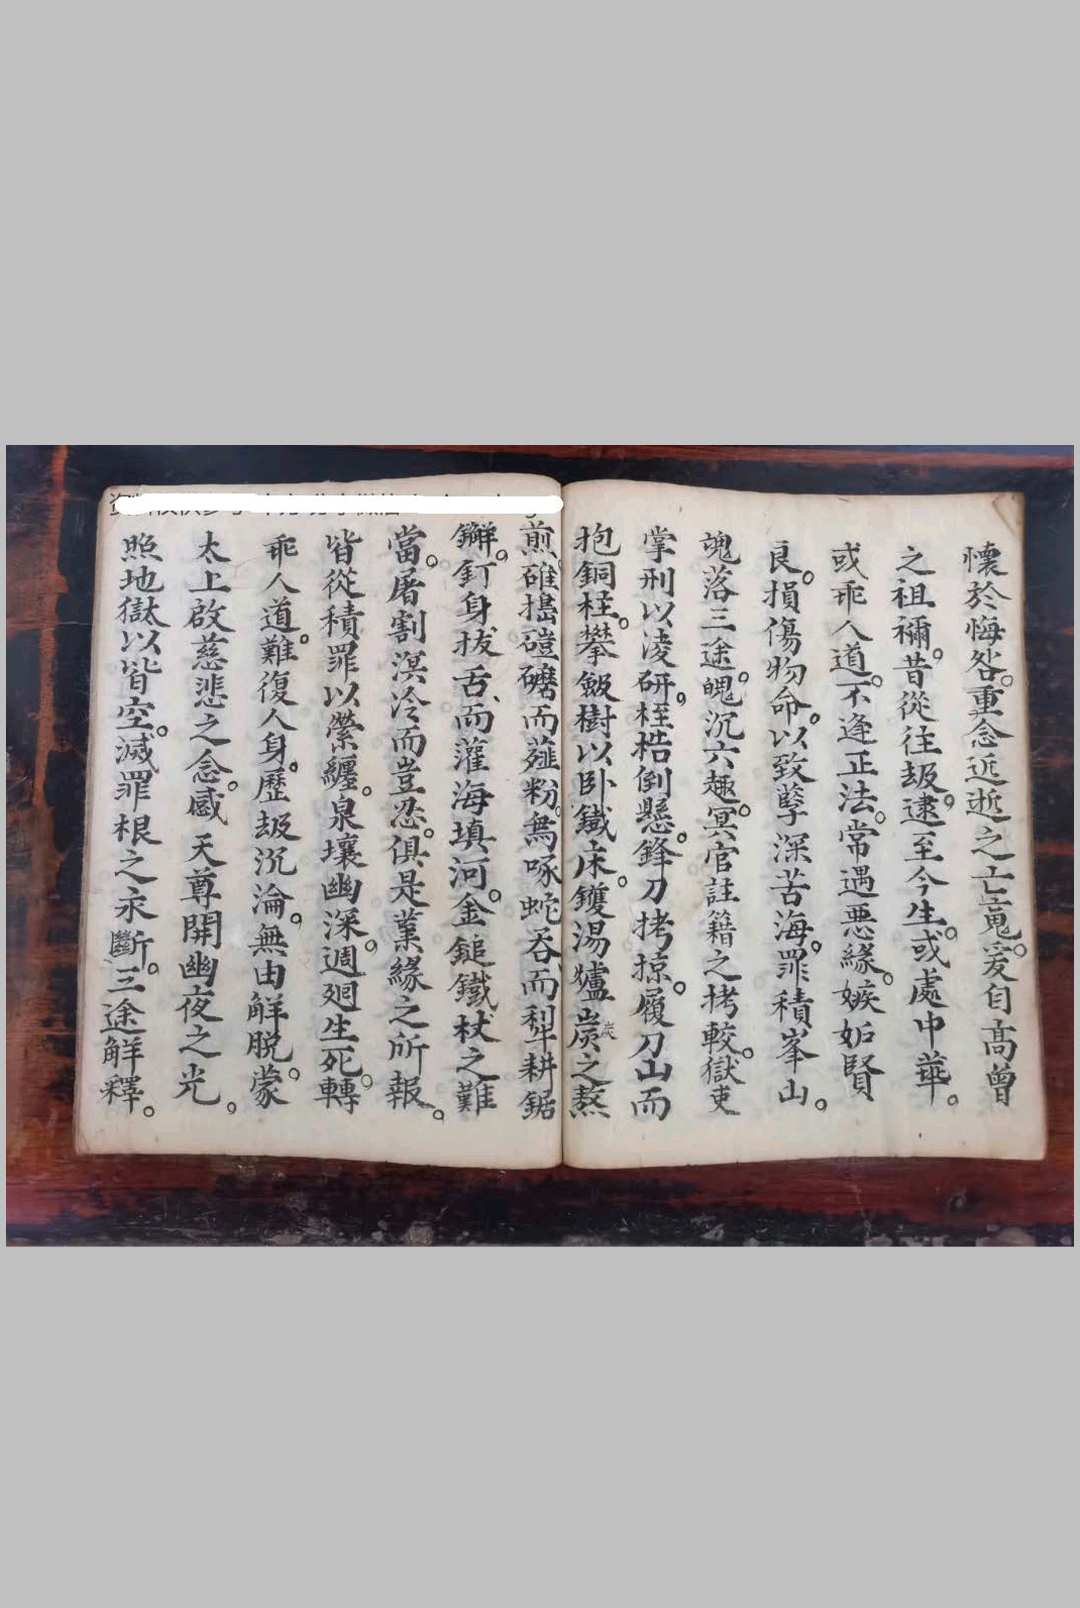 懷於悔咎。重念近逝之亡䰟。爰自高曾
之祖禰。昔從往刼。逮至今生。或處中華。
或乖人道。不逢正法。常遇悪緣。嫉妬賢
良。損傷物命。以致孽深苦海。罪積峯山。
魂落三途。魄沉六趣。冥官註籍之拷較。獄吏
掌刑以凌研。桎梏倒懸。鋒刀拷掠。履刀山而
抱銅柱。攀劔樹以卧鐵床。鑊湯爐炭之熬
煎。碓搗磑磨而虀粉。鳥啄蛇吞而犁耕鋸
觧。釘身拔舌、而灌海填河。金鎚鐵杖之難
當。屠割溟泠而豈忍。俱是業緣之所報。
皆從積罪以縈纏。泉壤幽深。週廻生死。轉
乖人道。難復人身。歷刼沉淪。無由解脱。蒙
太上啟慈悲之念。感天尊開幽夜之光。
照地獄以皆空。滅罪根之永斷。三途解釋。